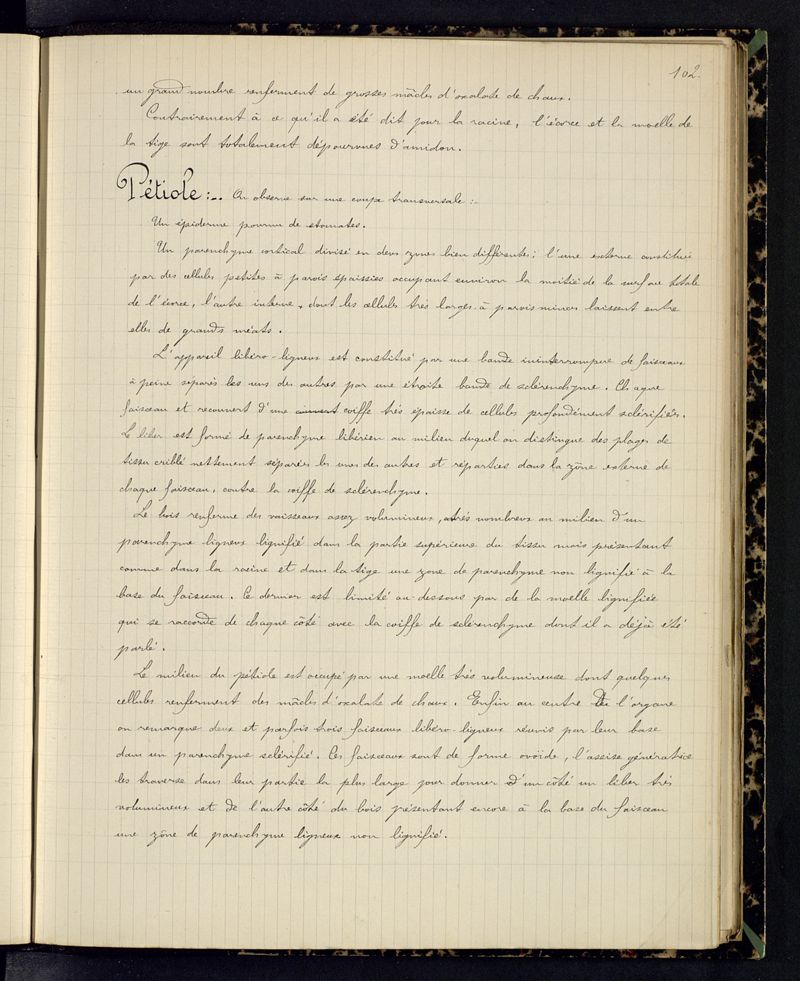 102.
un grand nombre renferment de grosses mâcles d'oxalate de chaux.
Contrairement à ce qu'il a été dit pour la racine, l'écorce et la moelle de
la tige sont totalement dépourvues d'amidon.
Pétiole :_. On observe sur une coupe transversale :_
Un épiderme pourvu de stomates.
Un parenchyme cortical divisé en deux zones bien différentes; l'une externe constituée
par des cellules petites à parois épaissies occupant environ la moitié de la surface totale
de l'écorce, l'autre interne, dont les cellules très larges à parois minces laissent entre
elles de grands méats.
L'appareil libéro-ligneux est constitué par une bande ininterrompue de faisceaux
à peine séparés les uns des autres par une étroite bande de sclérenchyme. Chaque
faisceau et recouvert d'une coiffe très épaisse de cellules profondément sclérifiées.
Le liber est formé de parenchyme libérien au milieu duquel on distingue des plages de
tissu criblé nettement séparées les unes des autres et réparties dans la zône externe de
chaque faisceau, contre la coiffe de sclérenchyme.
Le bois renferme des vaisseaux assez volumineux, très nombreux au milieu d'un
parenchyme ligneux lignifié dans la partie supérieure du tissu mais présentant
comme dans la racine et dans la tige une zone de parenchyme non lignifié à la
base du faisceau. Ce dernier est limité au-dessous par de la moelle lignifiée
qui se raccorde de chaque côté avec la coiffe de sclérenchyme dont il a déjà été
parlé.
Le milieu du pétiole est occupé par une moelle très volumineuse dont quelques
cellules renferment des mâcles d'oxalate de chaux. Enfin au centre de l'organe
on remarque deux et parfois trois faisceaux libéro-ligneux réunis par leur base
dans un parenchyme sclérifié. Ces faisceaux sont de forme ovoïde, l'assise génératrice
les traverse dans leur partie la plus large pour donner d'un côté un liber très
volumineux et de l'autre côté du bois présentant encore à la base du faisceau
une zône de parenchyme ligneux non lignifié.